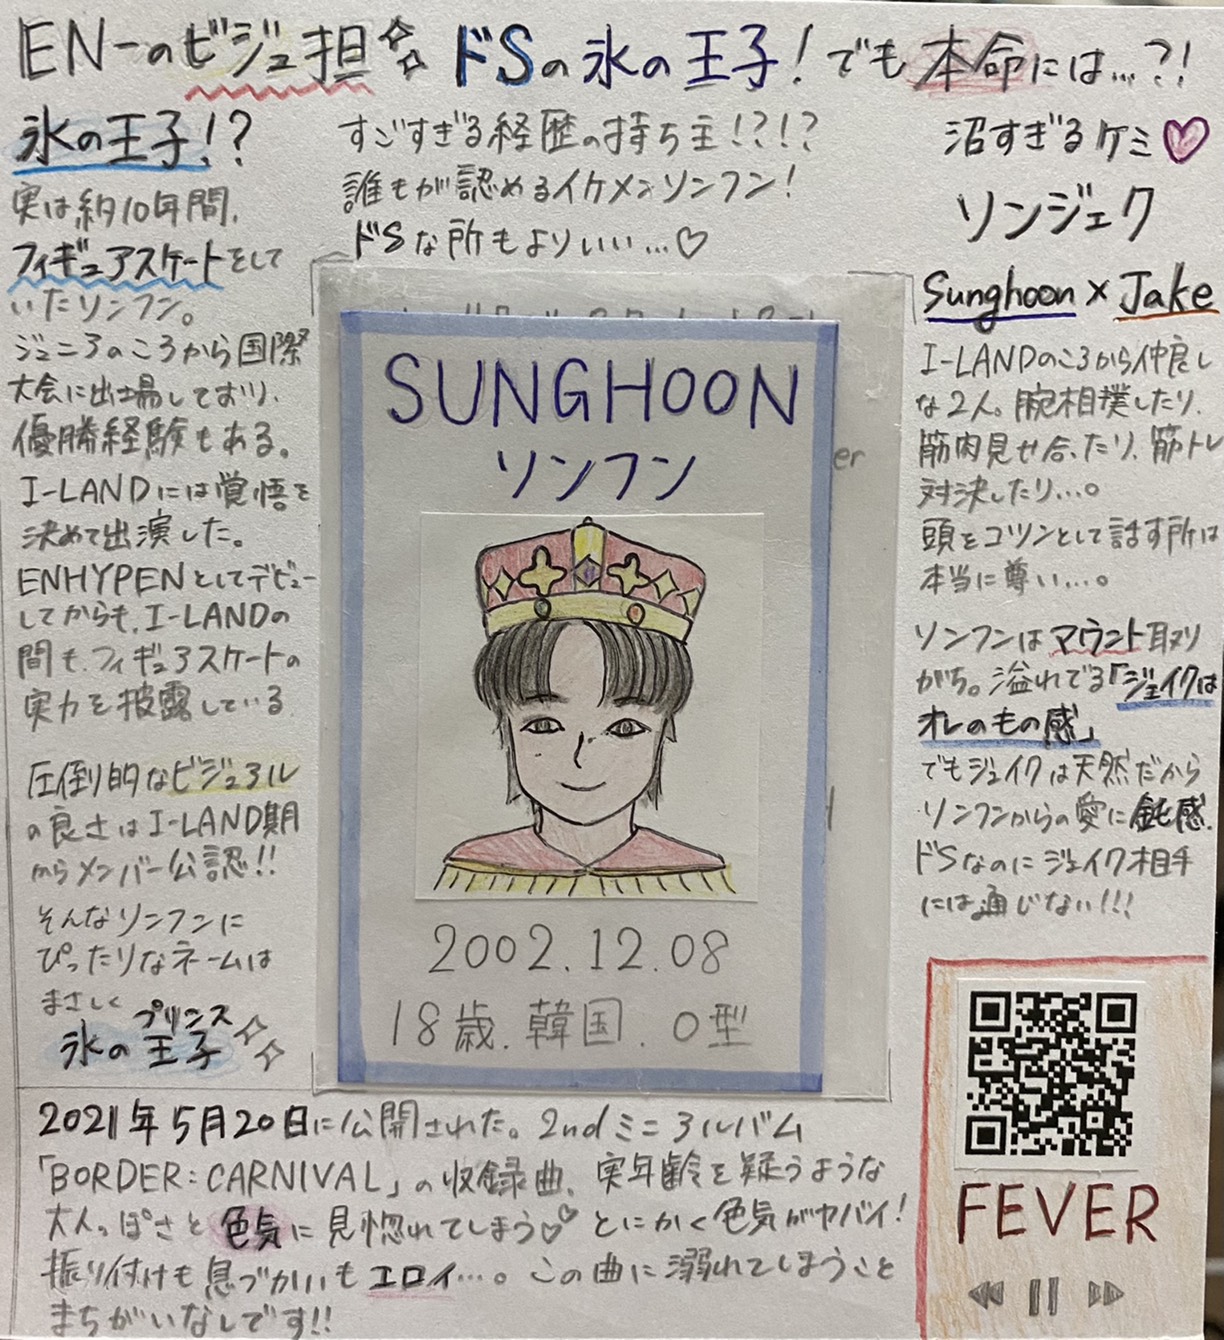 EN-のビジュ担 ドSの氷の王子!でも本命には…?!
氷の王子!?
実は約10年間、
フィギュアスケートをして
いたソンフン。
ジュニアのころから国際
大会に出場しており、
優勝経験もある。
I-LANDには覚悟を
決めて出演した。
ENHYPENとしてデビュー
してからも、I-LANDの
間も、フィギュアスケートの
実力を披露している
圧倒的なビジュアル
の良さはI-LAND期
からメンバー公認!!
そんなソンフンに
ぴったりなネームは
まさしく
プリンス
氷の王子
すごすぎる経歴の持ち主!?!?
誰もが認めるイケメンソンフン!
ドSな所もよりいい…♡
SUNGHOON
ソンフン
2002.12.08
18歳.韓国.O型
er
沼すぎるケミ♡
ソンジェク
Sunghoon×Jake
I-LANDのころから仲良し
な2人。腕相撲したり、
筋肉見せ合ったり、筋トレ
対決したり…。
頭をコツンとして話す所は
本当に尊い…。
ソンフンはマウント取り
がち。溢れでる「ジェイクは
オレのもの感」
でもジェイクは天然だから
ソンフンからの愛に鈍感、
ドSなのにジェイク相手
には通じない!!!
2021年5月20日に公開された。2ndミニアルバム
「BORDER:CARNIVAL」の収録曲、実年齢を疑うような
大人っぽさと色気に見惚れてしまう♡♡とにかく色気がヤバイ!
振り付けも息づかいもエロイ…。この曲に溺れてしまうこと
まちがいなしです!!
FEVER